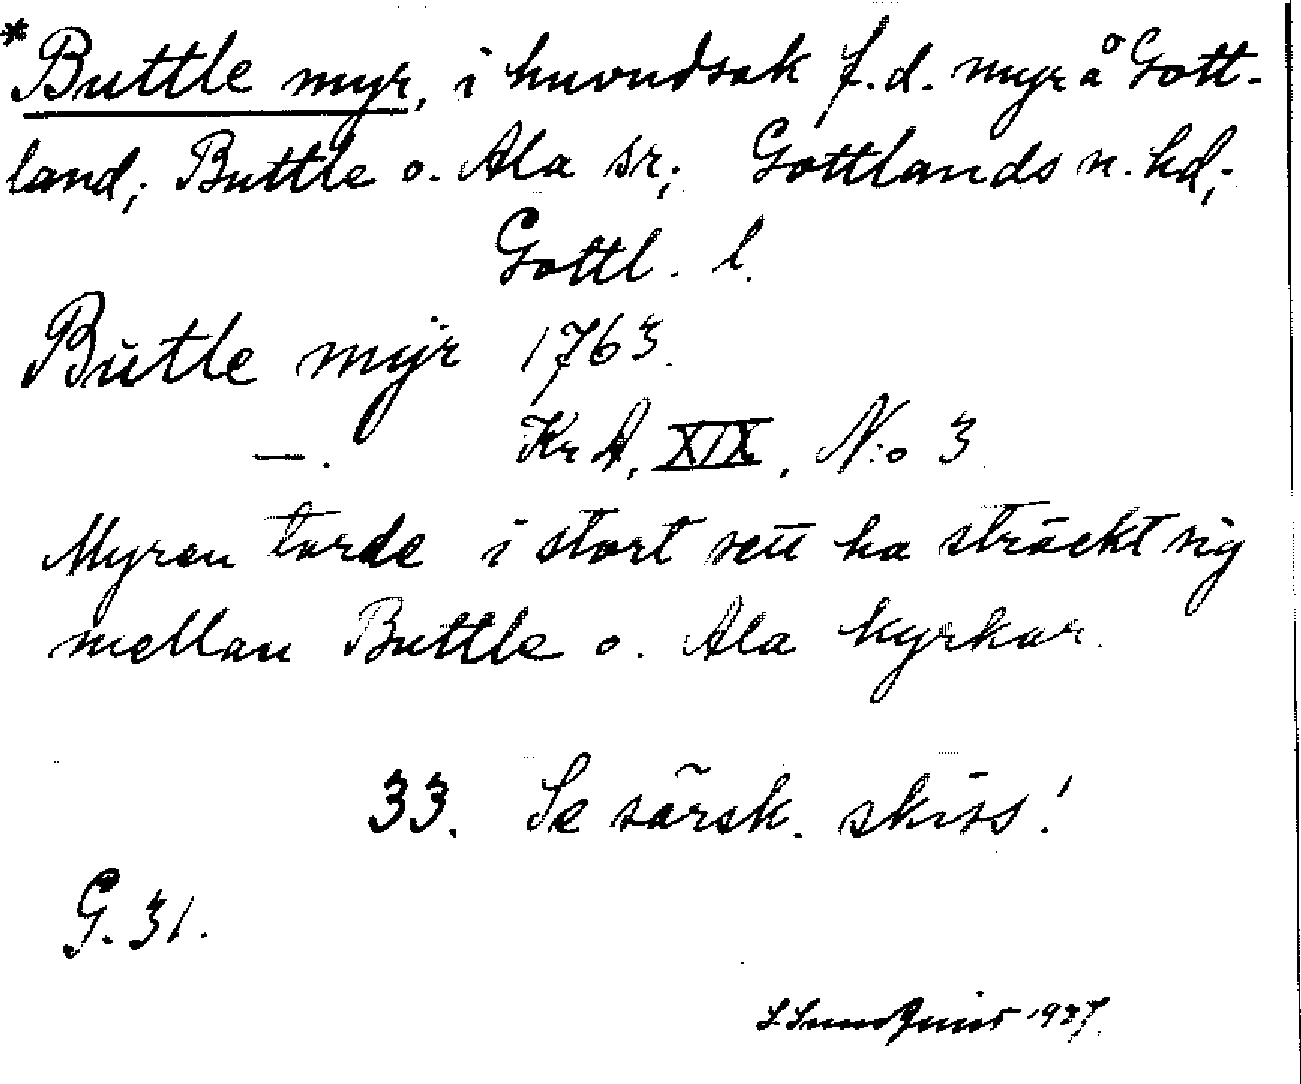 *Buttle myr, i huvudsak f.d. myr å Gott-
land; Buttle o. Ala sr; Gottlands n. hd;
Gottl. l.
Butle myr 1763.
—. KrA, XIX, N:o 3
Myren torde i stort sett ha sträckt sig
mellan Buttle o. Ala kyrkor.
33. Se särsk. skiss!
G. 31.
1937.